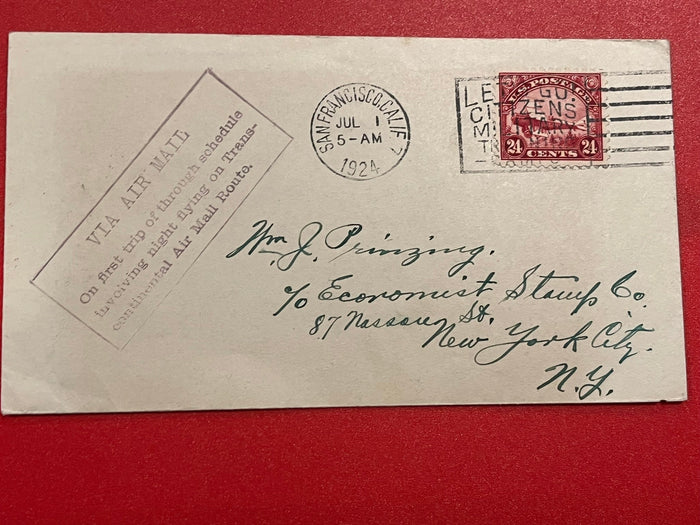 VIA AIR MAIL
On first trip of through schedule
involving night flying on Trans-
continental Air Mail Route.
SAN FRANCISCO, CALIF.
JUL 1
5-AM
1924
7
LE GO
CITIZENS
U.S. POSTAGE
24 CENTS 24
Wm. J. Prinzing.
c/o Economist Stamp Co.
87 Nassau St.
New York City.
N.Y.